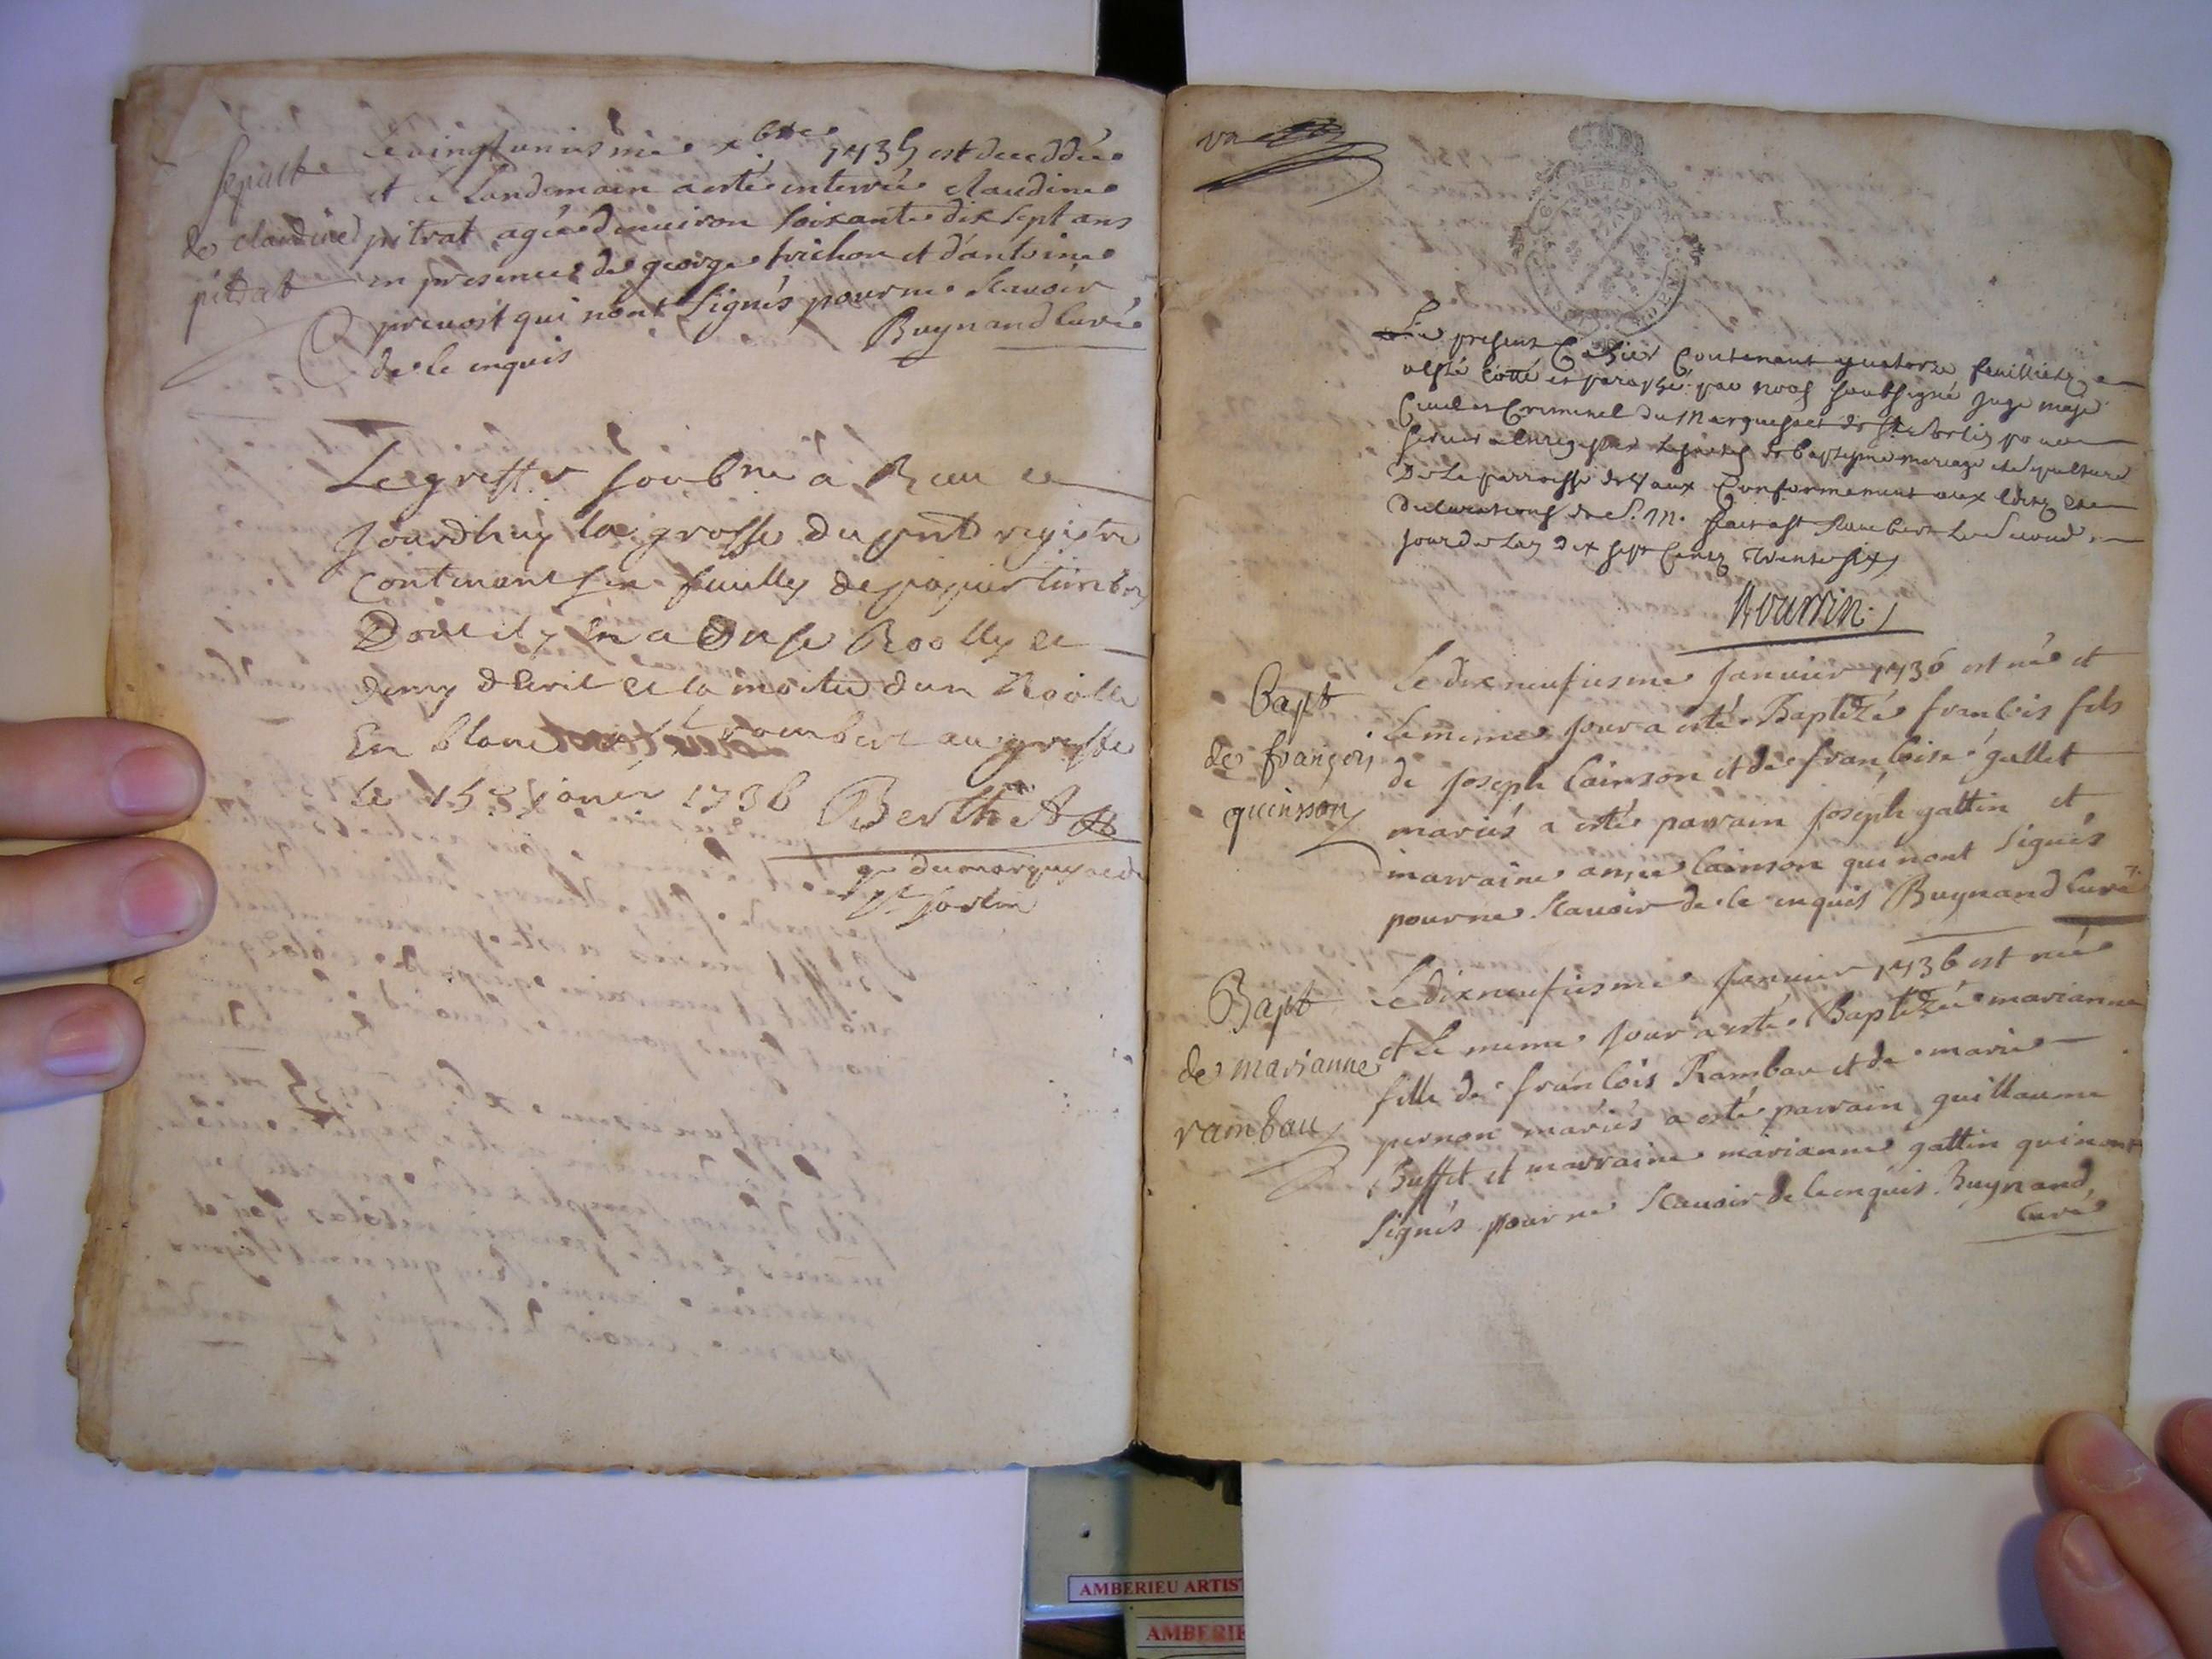 Sepult
de claudine
pitrat
Le vingtuniesme xbre 1735 est decedée
et ce Landemain a esté enterrée claudine
pitrat agée d'enuiron soixante dix sept ans
en presence de george trichon et d'antoine
preuost qui n'ont signés pour ne scauoir
de ce enquis Buynand curé
Le greffier soubne a Receu ce
jourdhuy la grosse du pnt registre
contenant six feuilles de papier timbré
Dont il y en a Onse Roolles et
demy d'Ecrit et la moitié d'un Roolle
En blanc St Rambert au greffe
le 15e janer 1736 Berthet
gr du marquisat de
St Sorlin
un
Le present Cahier Contenant quatorze feuillietz a
esté Cotté et paraphé par nous soubsigné juge maje
Ciuil et Criminel du Marquisact de St Sorlin pour
seruir a Enregistrer les actes de baptesme mariage et sepulture
De la parroisse de Vaux Conformement aux Editz et
Declarations de S. M. fait a St Rambert Le Second
jour de Lan dix sept Centz Trente six
Bapt
de françois
quinsson
Le dix neufiesme Januier 1736 est né et
Le meme jour a esté Baptizé francois fils
de joseph Cainson et de francoise gullet
mariés a esté parrain joseph gattin et
marraine Cainson qui n'ont signés
pour ne scauoir de ce enquis Buynand curé
Bapt
de marianne
rambau
Le dix neufiesme Januier 1736 est née
et Le meme jour a esté Baptizée marianne
fille de francois Rambau et de marie
pernon mariés a esté parrain guillaume
Buffet et marraine marianne gattin qui n'ont
signés pour ne scauoir de ce enquis Buynand
curé
AMBERIEU ARTIST
AMBERIE